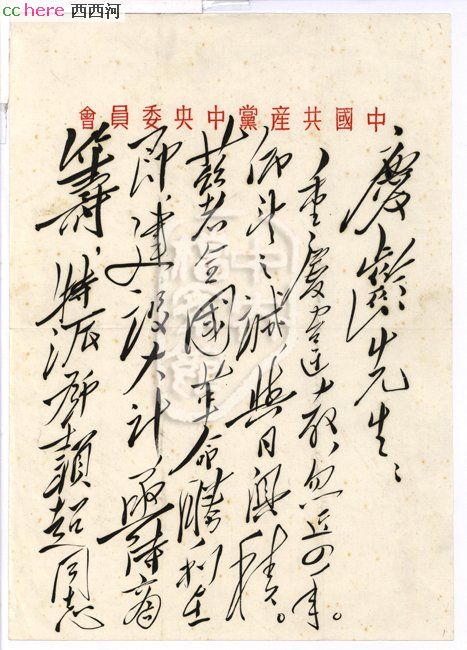 cchere 西西河
中國共産黨中央委員會
慶齡先生：
重慶違教，忽近四年。
仰望之誠與日俱積。
茲者全國革命勝利在
即，建設大計，亟待商
籌，特派鄧穎超同志